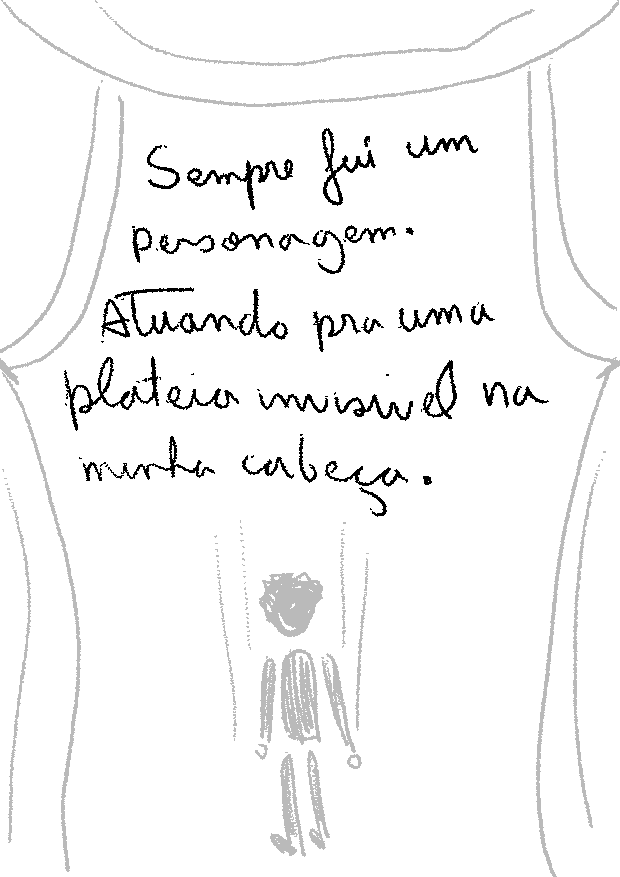 Sempre fui um
personagem.
Atuando pra uma
plateia invisivel na
minha cabeça.